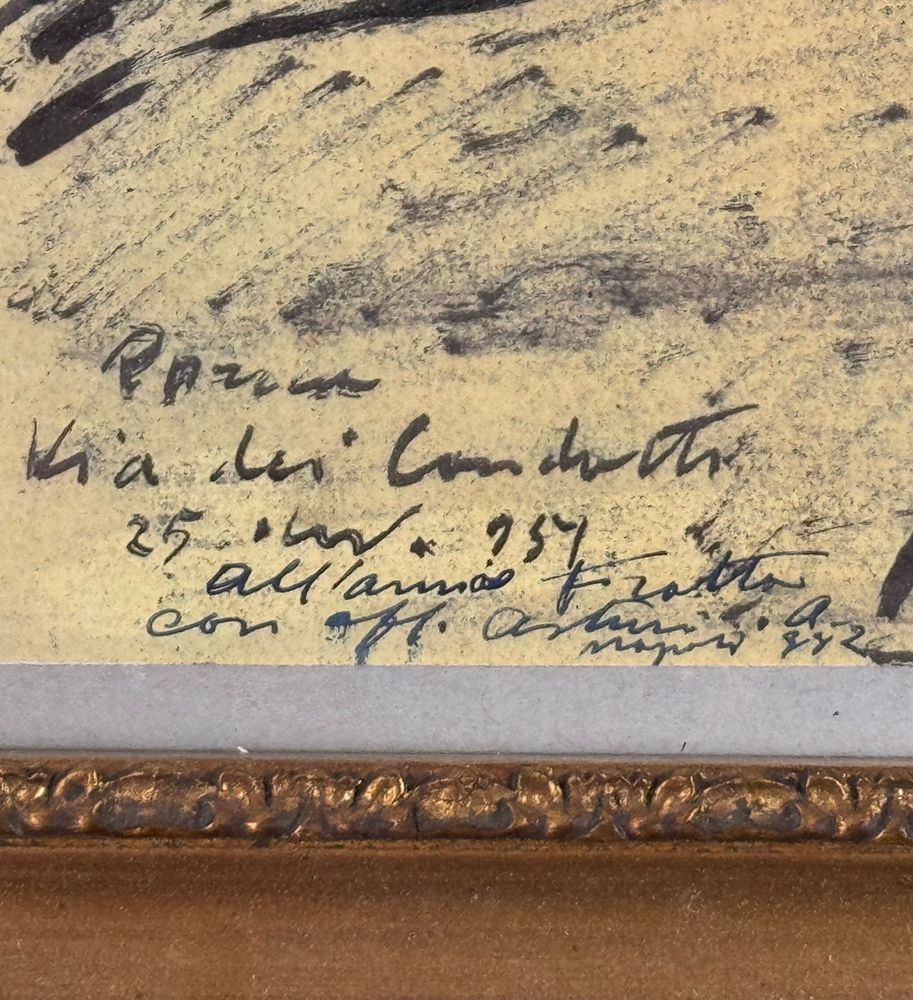 Roma
Via dei Condotti
25 nov. 957
all'amico Fratta
con aff. Arturo. A.
Napoli